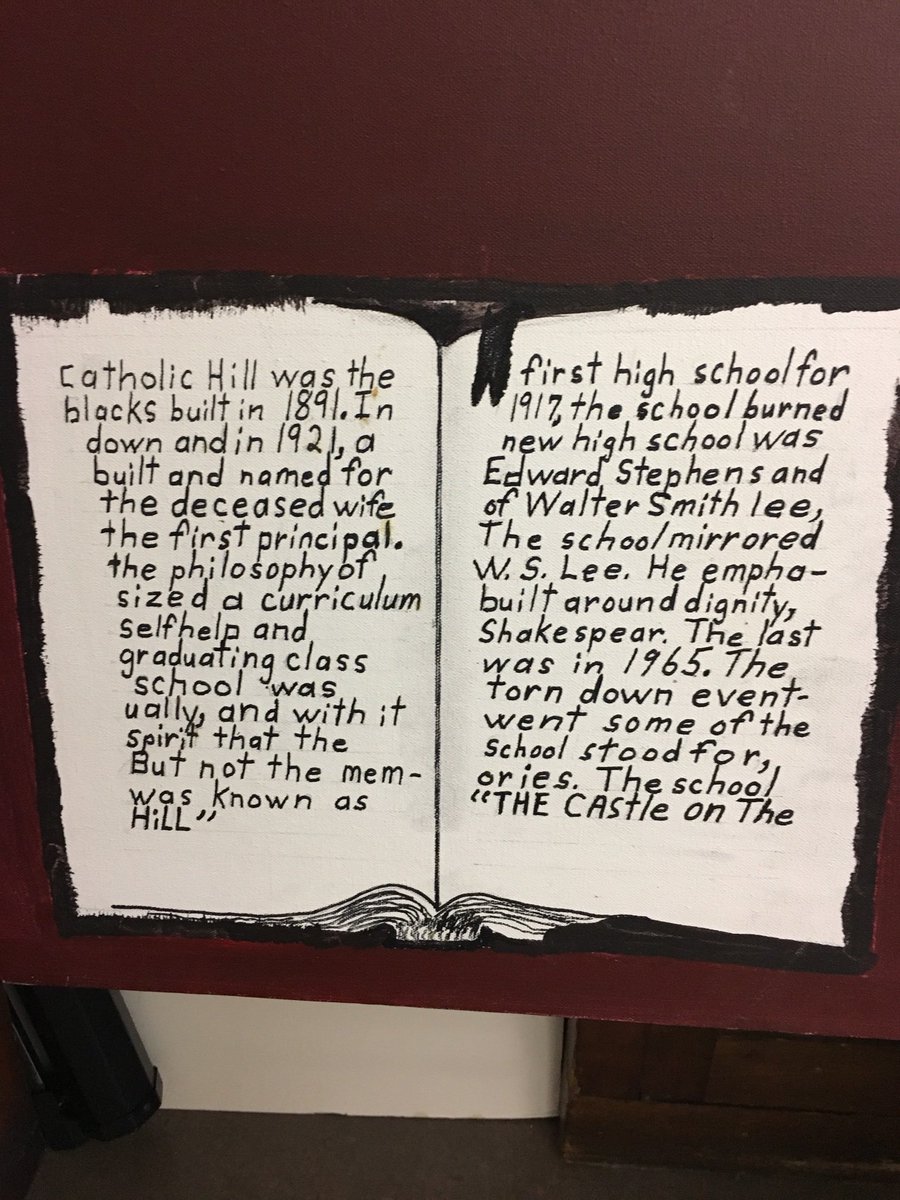 Catholic Hill was the first high school for
blacks built in 1891. In 1917, the school burned
down and in 1921, a new high school was
built and named for Edward Stephens and
the deceased wife of Walter Smith lee,
the first principal. The school mirrored
the philosophy of W. S. Lee. He empha-
sized a curriculum built around dignity,
selfhelp and Shakespear. The last
graduating class was in 1965. The
school was torn down event-
ually, and with it went some of the
spirit that the school stood for,
But not the mem-ories. The school
was known as "THE CAstle on The
HiLL"